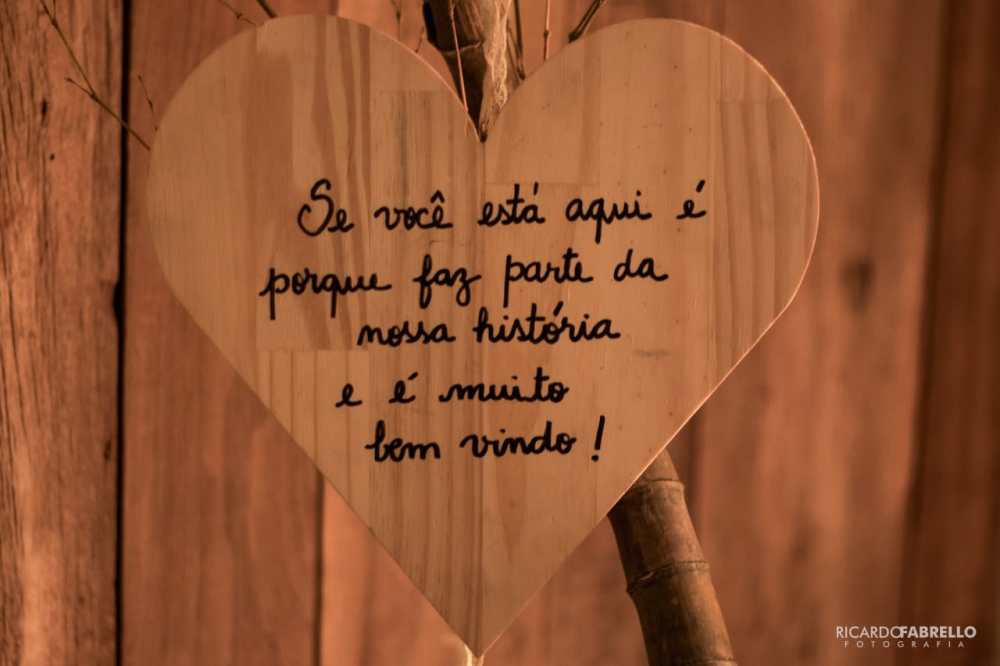 Se você está aqui é
porque faz parte da
nossa história
e é muito
bem vindo!
RICARDOFABRELLO
FOTOGRAFIA